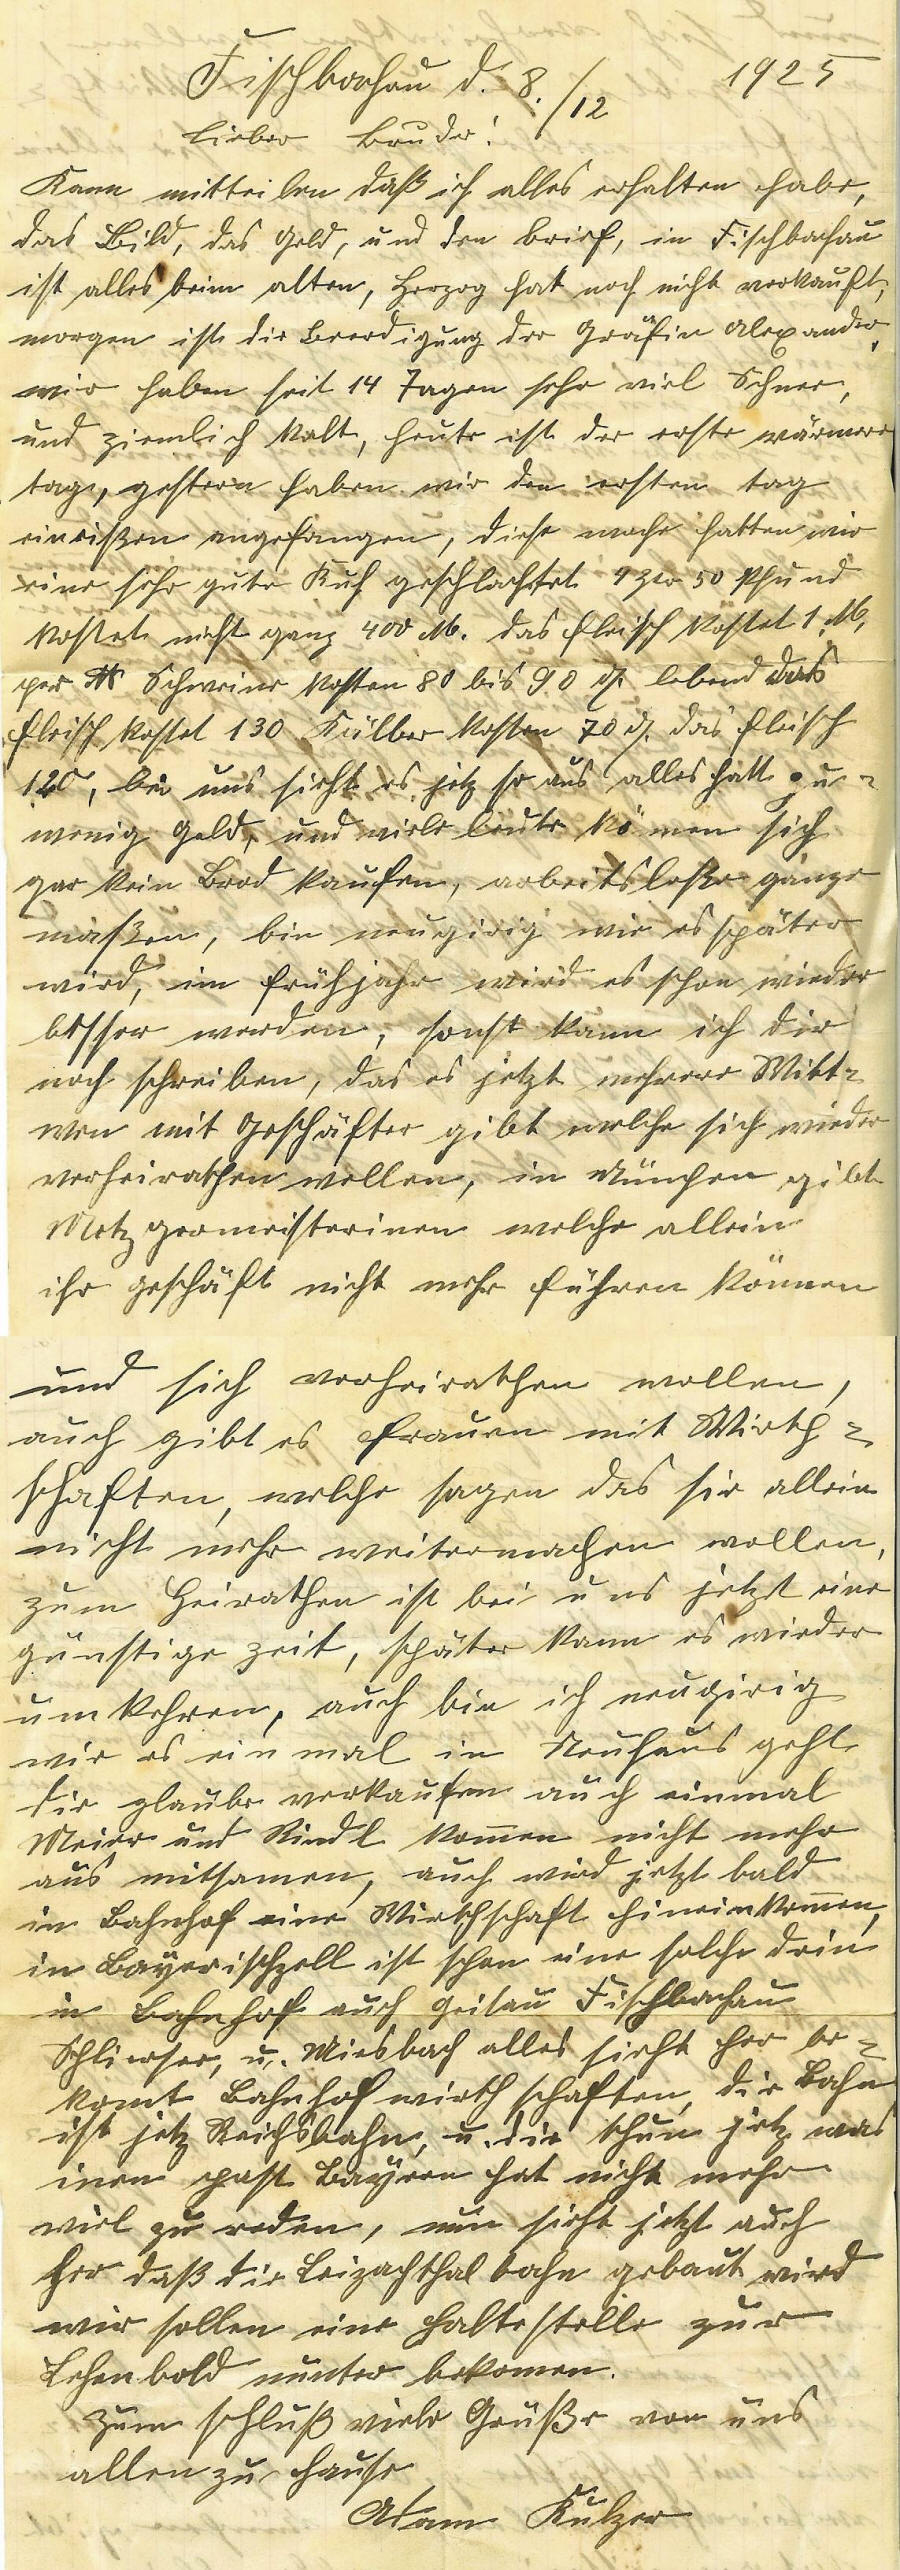 Fischbachau d. 8./12 1925
Lieber Bruder!
Kann mitteilen daß ich alles erhalten habe,
das Bild, das Geld, und den brief, in Fischbachau
ist alles beim alten, Herzog hat noch nicht verkauft,
morgen ist die Beerdigung der Gräfin Alexander,
wir haben seit 14 Tagen sehr viel Schnee,
und ziemlich kalt, heute ist der erste wärmere
tag, gestern haben wir den ersten tag
eineißen angefangen, diese woche hatten wir
eine sehr gute Kuh geschlachtet 9 Ztr 50 Pfund
kostet nicht ganz 400 M. das fleisch kostet 1 M,
per ℔ Schweine kosten 80 bis 90 d. lebend das
fleisch kostet 130 Külber kosten 70 d. das fleisch
120, bei uns sieht es jetz so aus alles hatt zu-
wenig Geld, und viele leute kömen sich
gar kein Brod kaufen, arbeitsloße ganze
maßen, bin neugirig wie es später
wird, im frühjahr wird es schon wieder
besser werden, sonst kann ich dir
noch schreiben, das es jetzt mehrere Witt-
wen mit Geschäfter gibt welche sich wieder
verheirathen wollen, in München gibt
Metzgermeisterinen welche allein
ihr geschäft nicht mehr führen können
und sich verheirathen wollen,
auch gibt es frauen mit Wirth-
schaften, welche sagen das sie allein
nicht mehr weitermachen wollen,
zum Heirathen ist bei uns jetzt eine
günstige zeit, später kann es wieder
umkehren, auch bin ich neugirig
wie es einmal in Neuhaus geht
die glaube verkaufen auch einmal
Meier und Riedl kommen nicht mehr
aus mitsamen, auch wird jetzt bald
in Bahnhof eine Wirthschaft hineinkommen,
in Bayerischzell ist schon eine solche drin
in Bahnhof auch Geitau Fischbachau
Schliersee, u. Miesbach alles sieht her be-
komt Bahnhofwirthschaften, die Bahn
ist jetz Reichsbahn, u. die thun jetz was
inen past Bayren hat nicht mehr
viel zu reden, nun sieht jetzt auch
her daß die Leizachthalbahn gebaut wird
wir sollen eine Haltestelle zur
Lehenbold nunter bekomen.
Zum schluß viele Grüße von uns
allen zu hause
Adam Kulzer